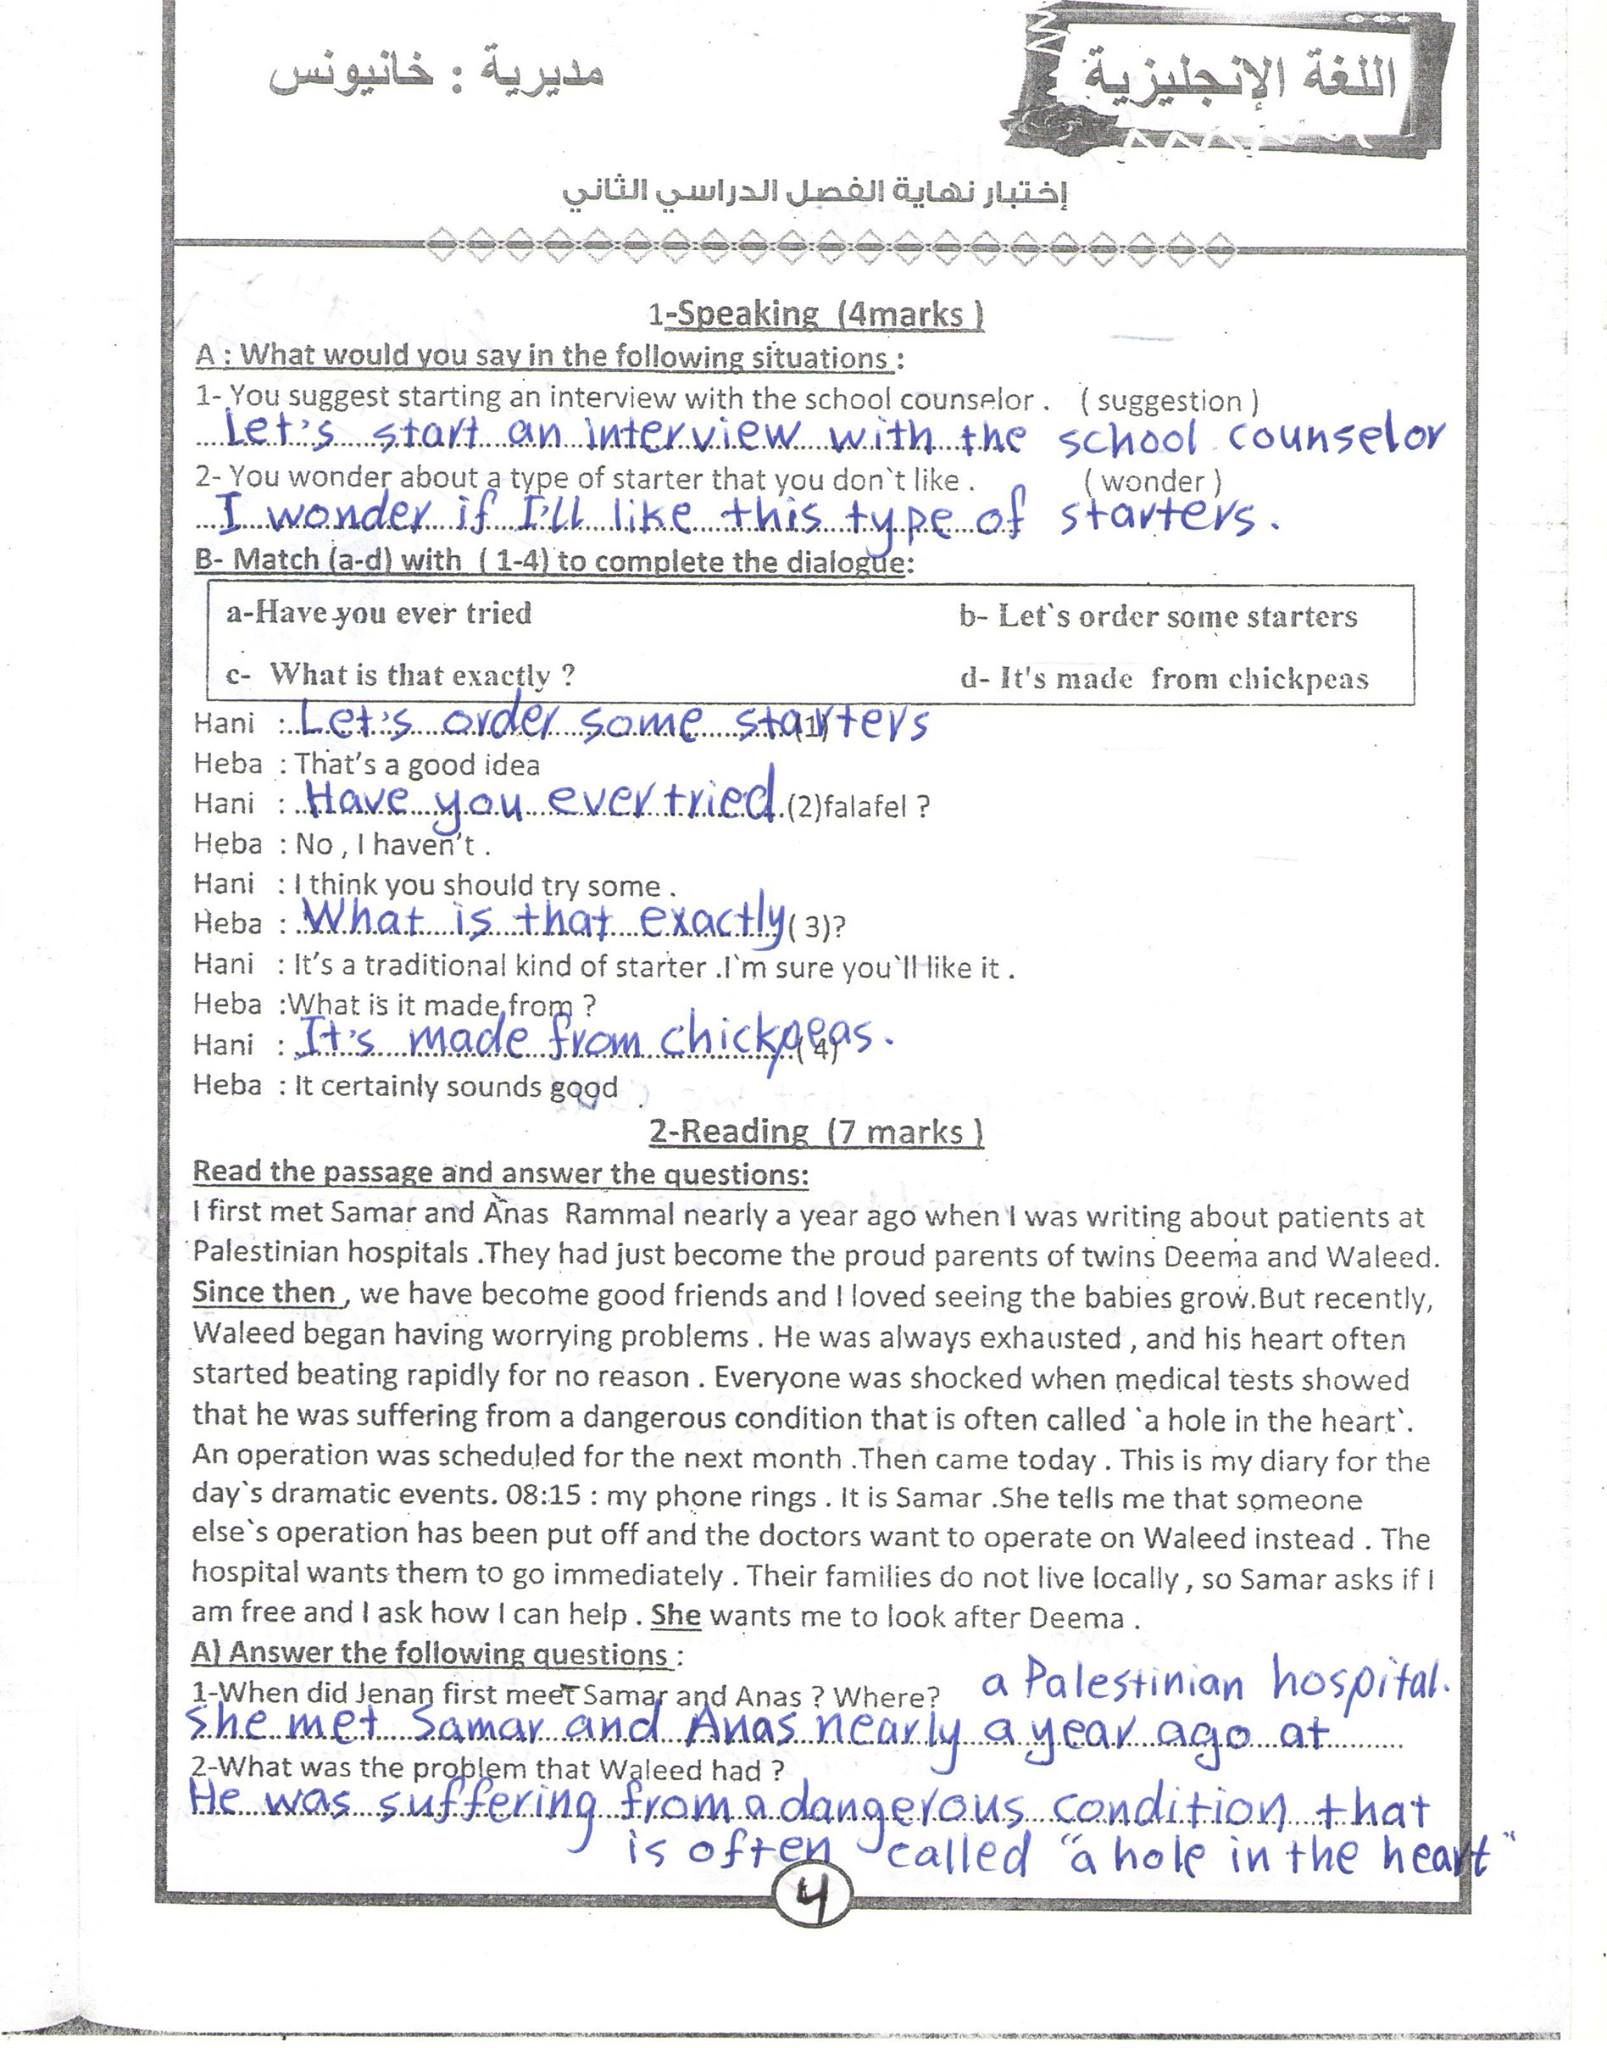 اللغة الإنجليزية
مديرية : خانيونس
إختبار نهاية الفصل الدراسي الثاني
1-Speaking (4marks )
A : What would you say in the following situations :
1- You suggest starting an interview with the school counselor . ( suggestion )
Let's start an interview with the school counselor
2- You wonder about a type of starter that you don`t like . ( wonder )
I wonder if I'll like this type of starters.
B- Match (a-d) with ( 1-4) to complete the dialogue:
a-Have you ever tried b- Let`s order some starters
c- What is that exactly ? d- It's made from chickpeas
Hani : Let's order some starters (1)
Heba : That's a good idea
Hani : Have you ever tried (2)falafel ?
Heba : No , I haven't .
Hani : I think you should try some .
Heba : What is that exactly ( 3)?
Hani : It's a traditional kind of starter .I`m sure you`ll like it .
Heba :What is it made from ?
Hani : It's made from chickpeas. ( 4)
Heba : It certainly sounds good
2-Reading (7 marks )
Read the passage and answer the questions:
I first met Samar and Anas Rammal nearly a year ago when I was writing about patients at
Palestinian hospitals .They had just become the proud parents of twins Deema and Waleed.
Since then , we have become good friends and I loved seeing the babies grow.But recently,
Waleed began having worrying problems . He was always exhausted , and his heart often
started beating rapidly for no reason . Everyone was shocked when medical tests showed
that he was suffering from a dangerous condition that is often called `a hole in the heart`.
An operation was scheduled for the next month .Then came today . This is my diary for the
day`s dramatic events. 08:15 : my phone rings . It is Samar .She tells me that someone
else`s operation has been put off and the doctors want to operate on Waleed instead . The
hospital wants them to go immediately . Their families do not live locally , so Samar asks if I
am free and I ask how I can help . She wants me to look after Deema .
A) Answer the following questions :
1-When did Jenan first meet Samar and Anas ? Where? a Palestinian hospital.
she met Samar and Anas nearly a year ago at
2-What was the problem that Waleed had ?
He was suffering from a dangerous condition that
is often called "a hole in the heart"
4